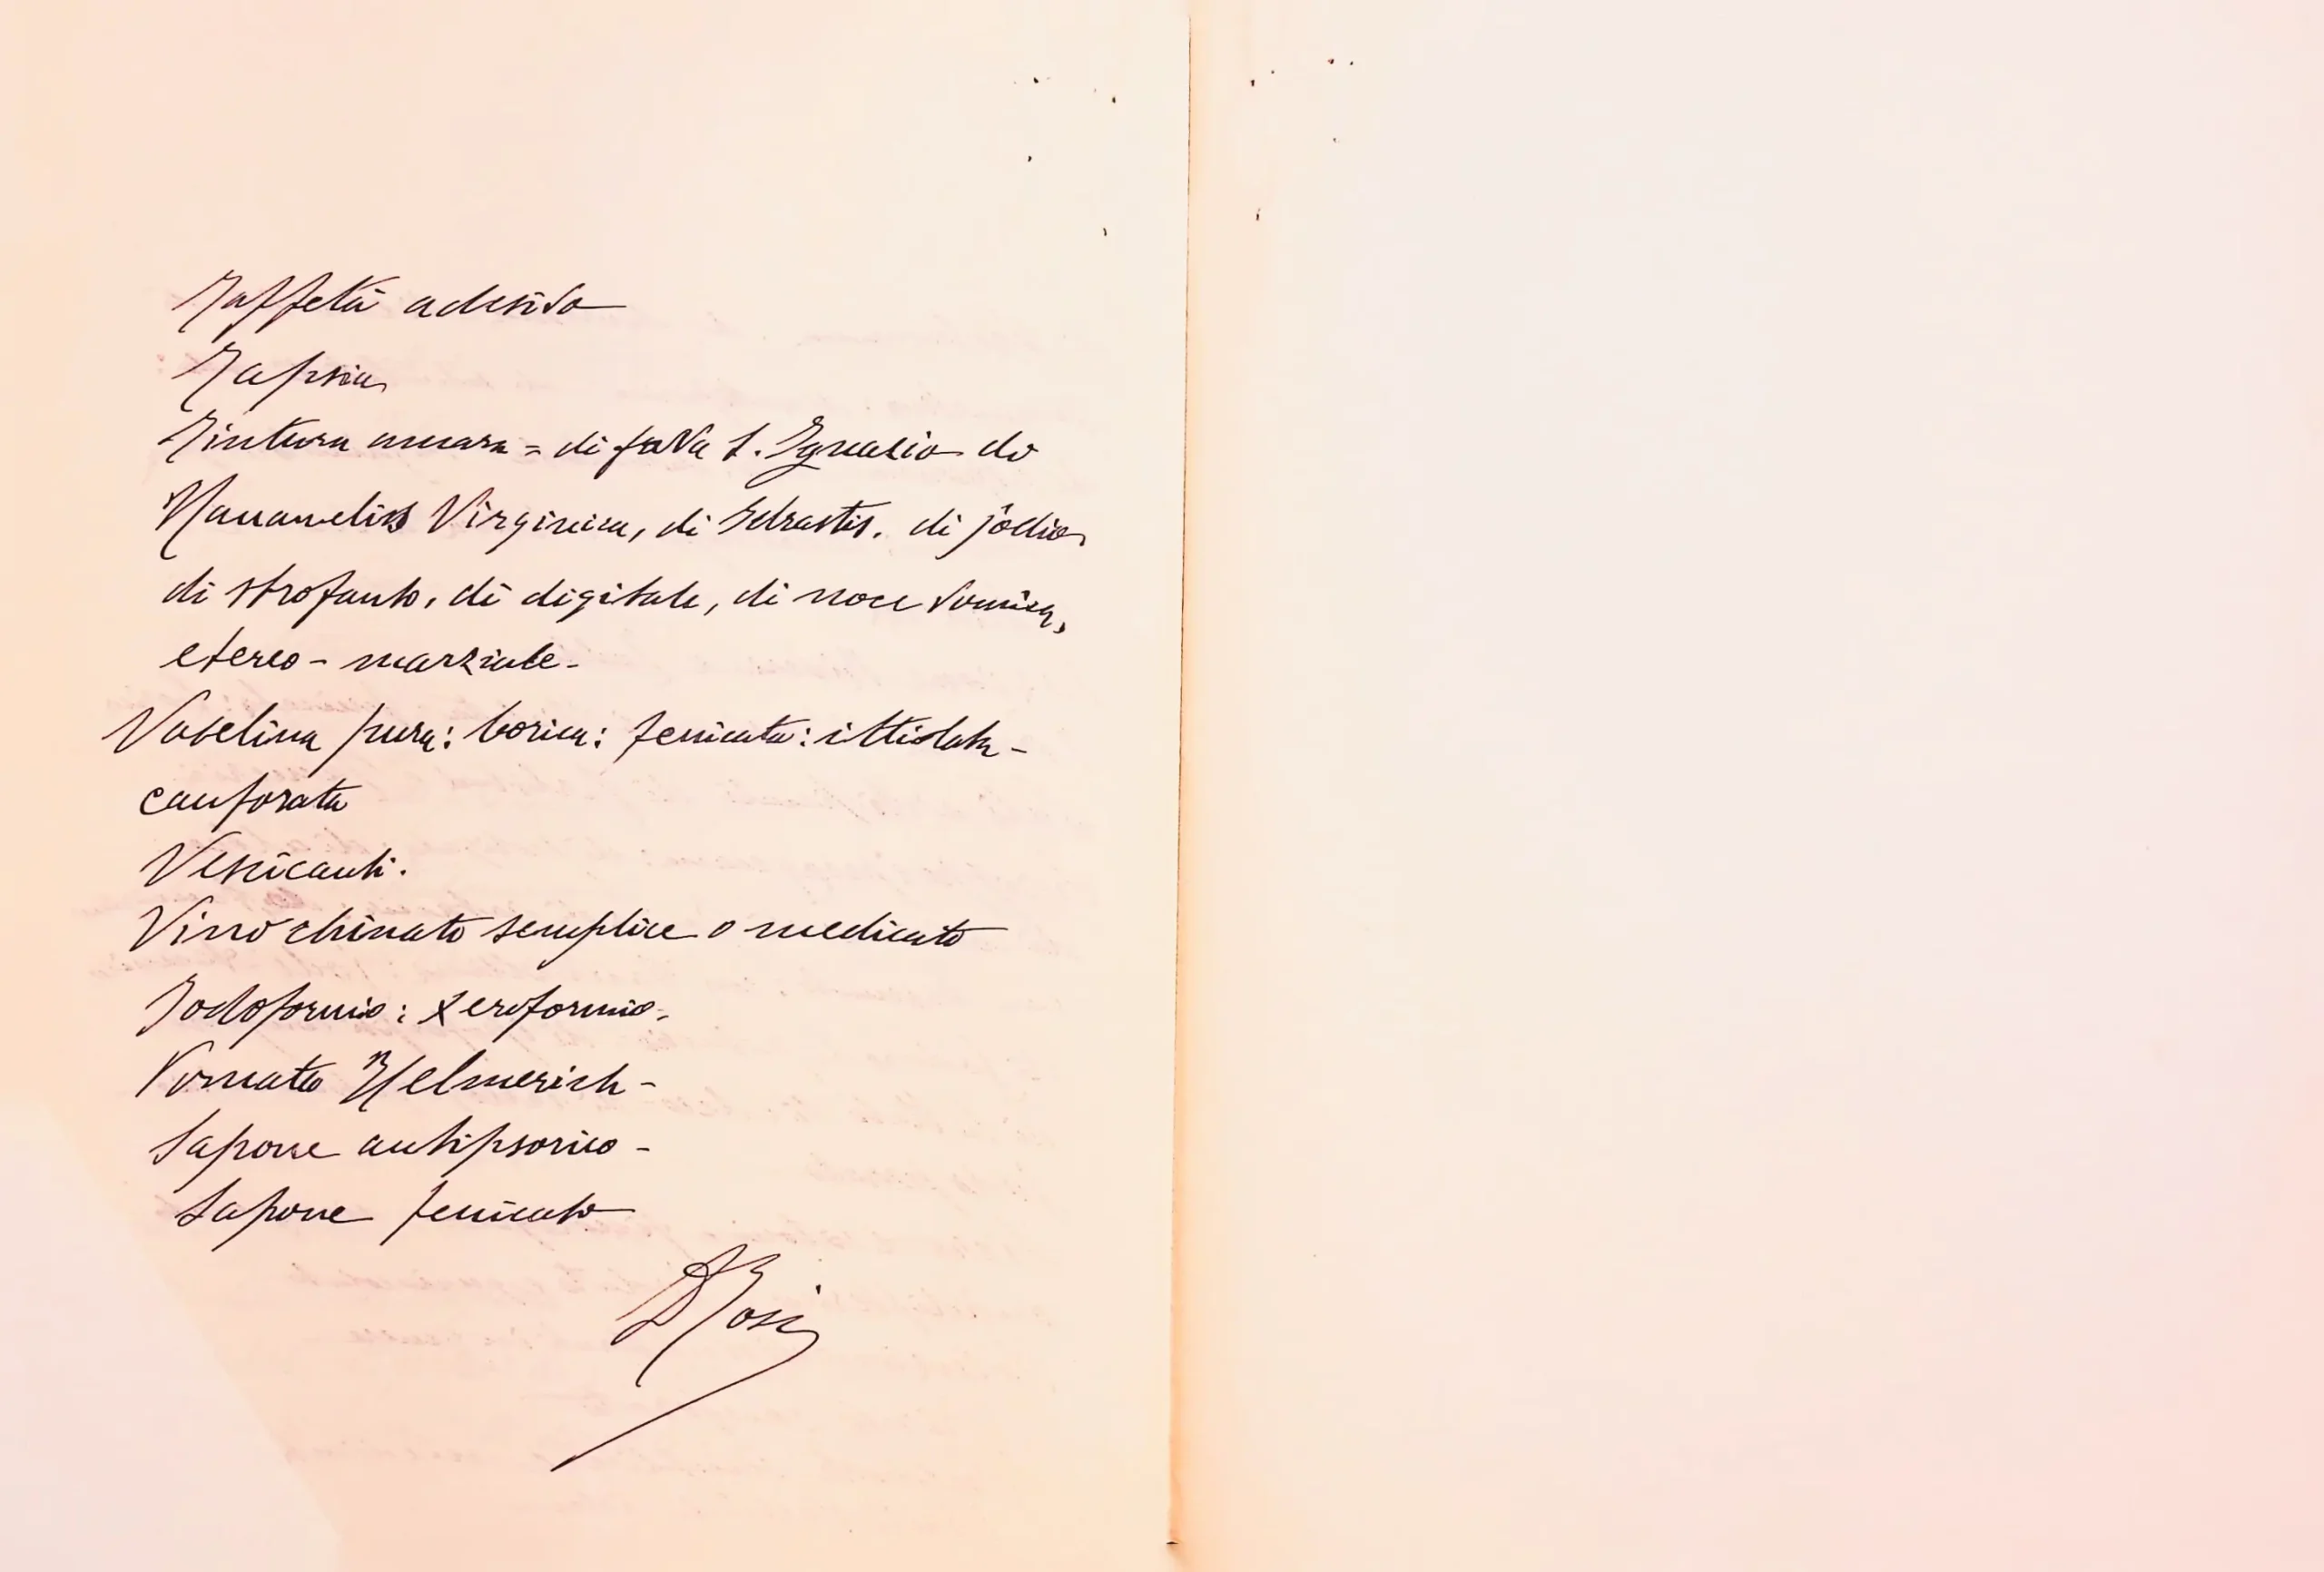 Taffetà adesivo
Tapsia
Tintura amara = di fava S. Ignazio di
Hamamelis Virginica, di Idrastis. di jodio
di strofanto, di digitale, di noce vomica,
etereo - marziale -
Vaselina pura: borica: fenicata: ittiolata -
canforata
Vescicanti.
Vino chinato semplice o medicato
Jodoformio: xeroformio -
Pomata Helmerich -
Sapone antipsorico -
Sapone fenicato